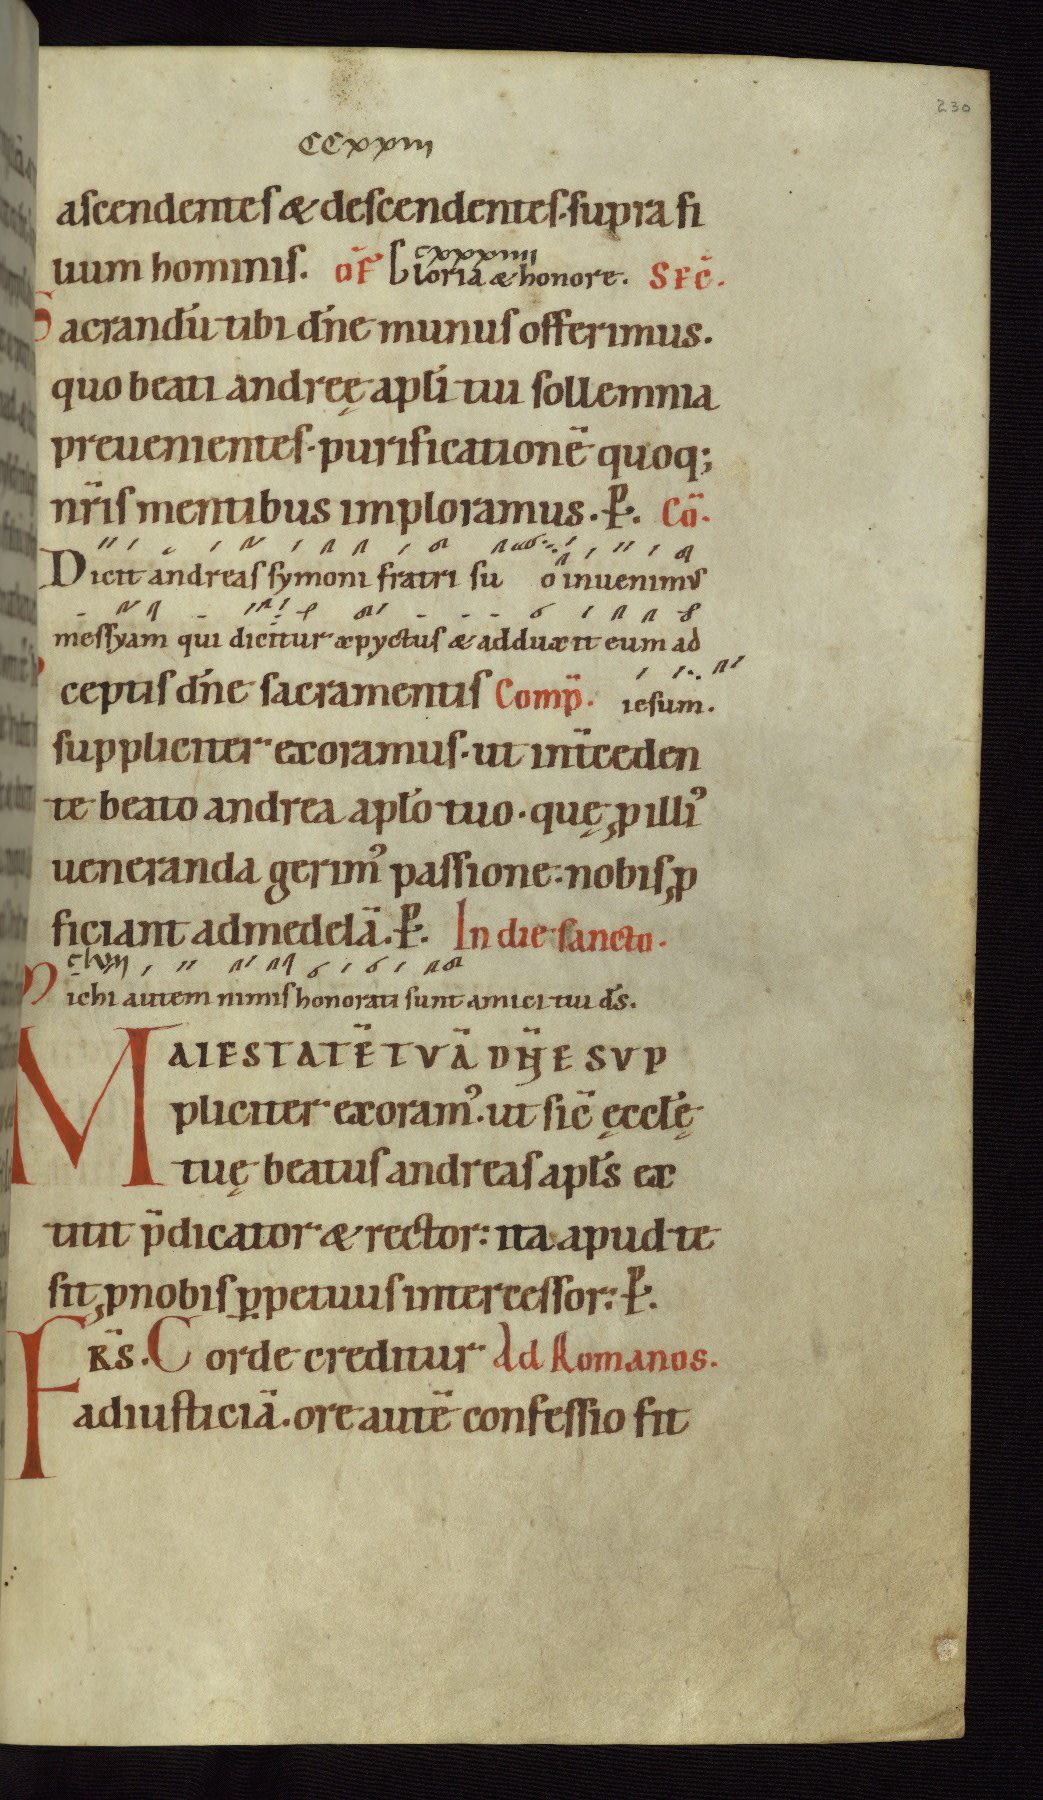 230
CCXXIII
ascendentes & descendentes. supra fi
uum hominis. OF̄ Gloria & honore. SEC̄.
cxxxiiii
Sacrandū tibi dn̄e munus offerimus.
quo beati andreę apl̄i tui sollemnia
preuenientes. purificationē quoq;
nr̄is mentibus imploramus. P. Cō.
Dicit andreas symoni fratri suo inuenimus
messyam qui dicitur xpyctus & adduxit eum ad
ceptis dn̄e sacramentis Comp̄. iesum.
suppliciter exoramus. ut int̄ceden
te beato andrea apl̄o tuo. quę ꝓ illi᾿
ueneranda gerim᾿ passione: nobis ꝓ
ficiant ad medelā. P. In die sancto.
Michi autem nimis honorati sunt amici tui ds̄.
MAIESTATĒ TVĀ DN̄E SVP
pliciter exoram᾿. ut sic̄ ęccl̄ę
tuę beatus andreas apl̄s ex
titit p̄dicator & rector: ita apud te
sit ꝓ nobis ꝑpetuus intercessor: P.
FRS̄. Corde creditur Ad Romanos.
ad iusticiā. ore autē confessio fit